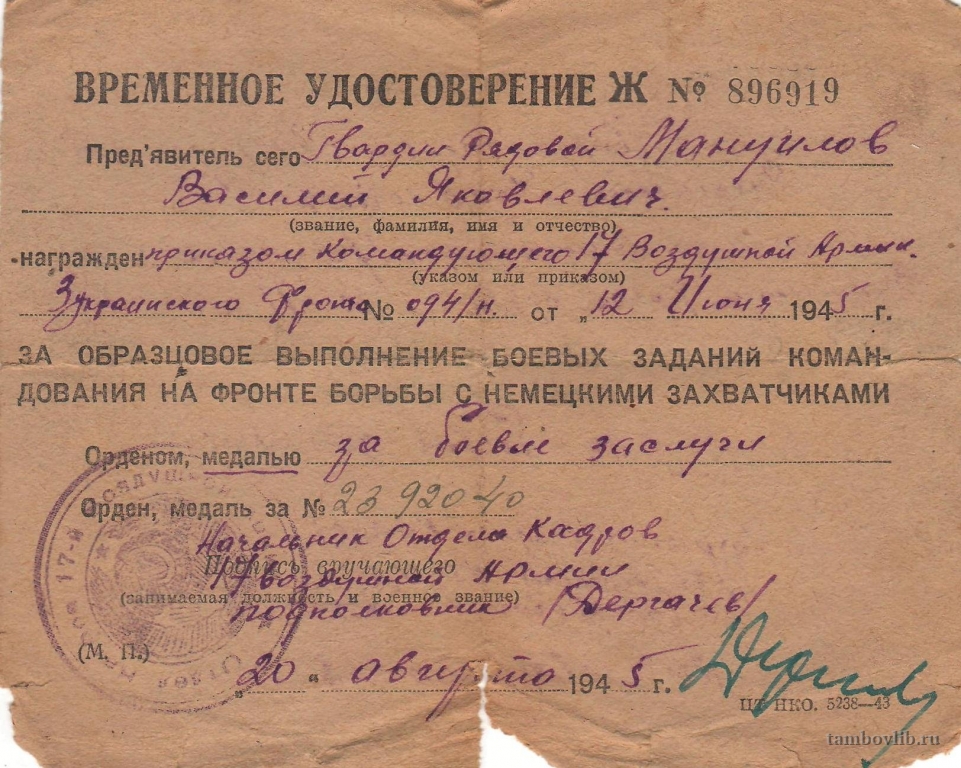 ВРЕМЕННОЕ УДОСТОВЕРЕНИЕ Ж № 896919
Пред'явитель сего Гвардии Рядовой Мануилов
Василий Яковлевич.
(звание, фамилия, имя и отчество)
награжден приказом Командующего 17 Воздушной Армии.
(указом или приказом)
3 Украинского Фронта № 094/н. от „12 Июня 1945 г.
ЗА ОБРАЗЦОВОЕ ВЫПОЛНЕНИЕ БОЕВЫХ ЗАДАНИЙ КОМАН-
ДОВАНИЯ НА ФРОНТЕ БОРЬБЫ С НЕМЕЦКИМИ ЗАХВАТЧИКАМИ
Орденом, медалью за боевые заслуги
Орден, медаль за № 2392040
Начальник Отдела Кадров
Подпись вручающего
17 воздушной Армии
(занимаемая должность и военное звание)
подполковник /Дергачев/
(М. П.)
„20 “ августа 1945 г.
НКО. 5238—43
tambovlib.ru